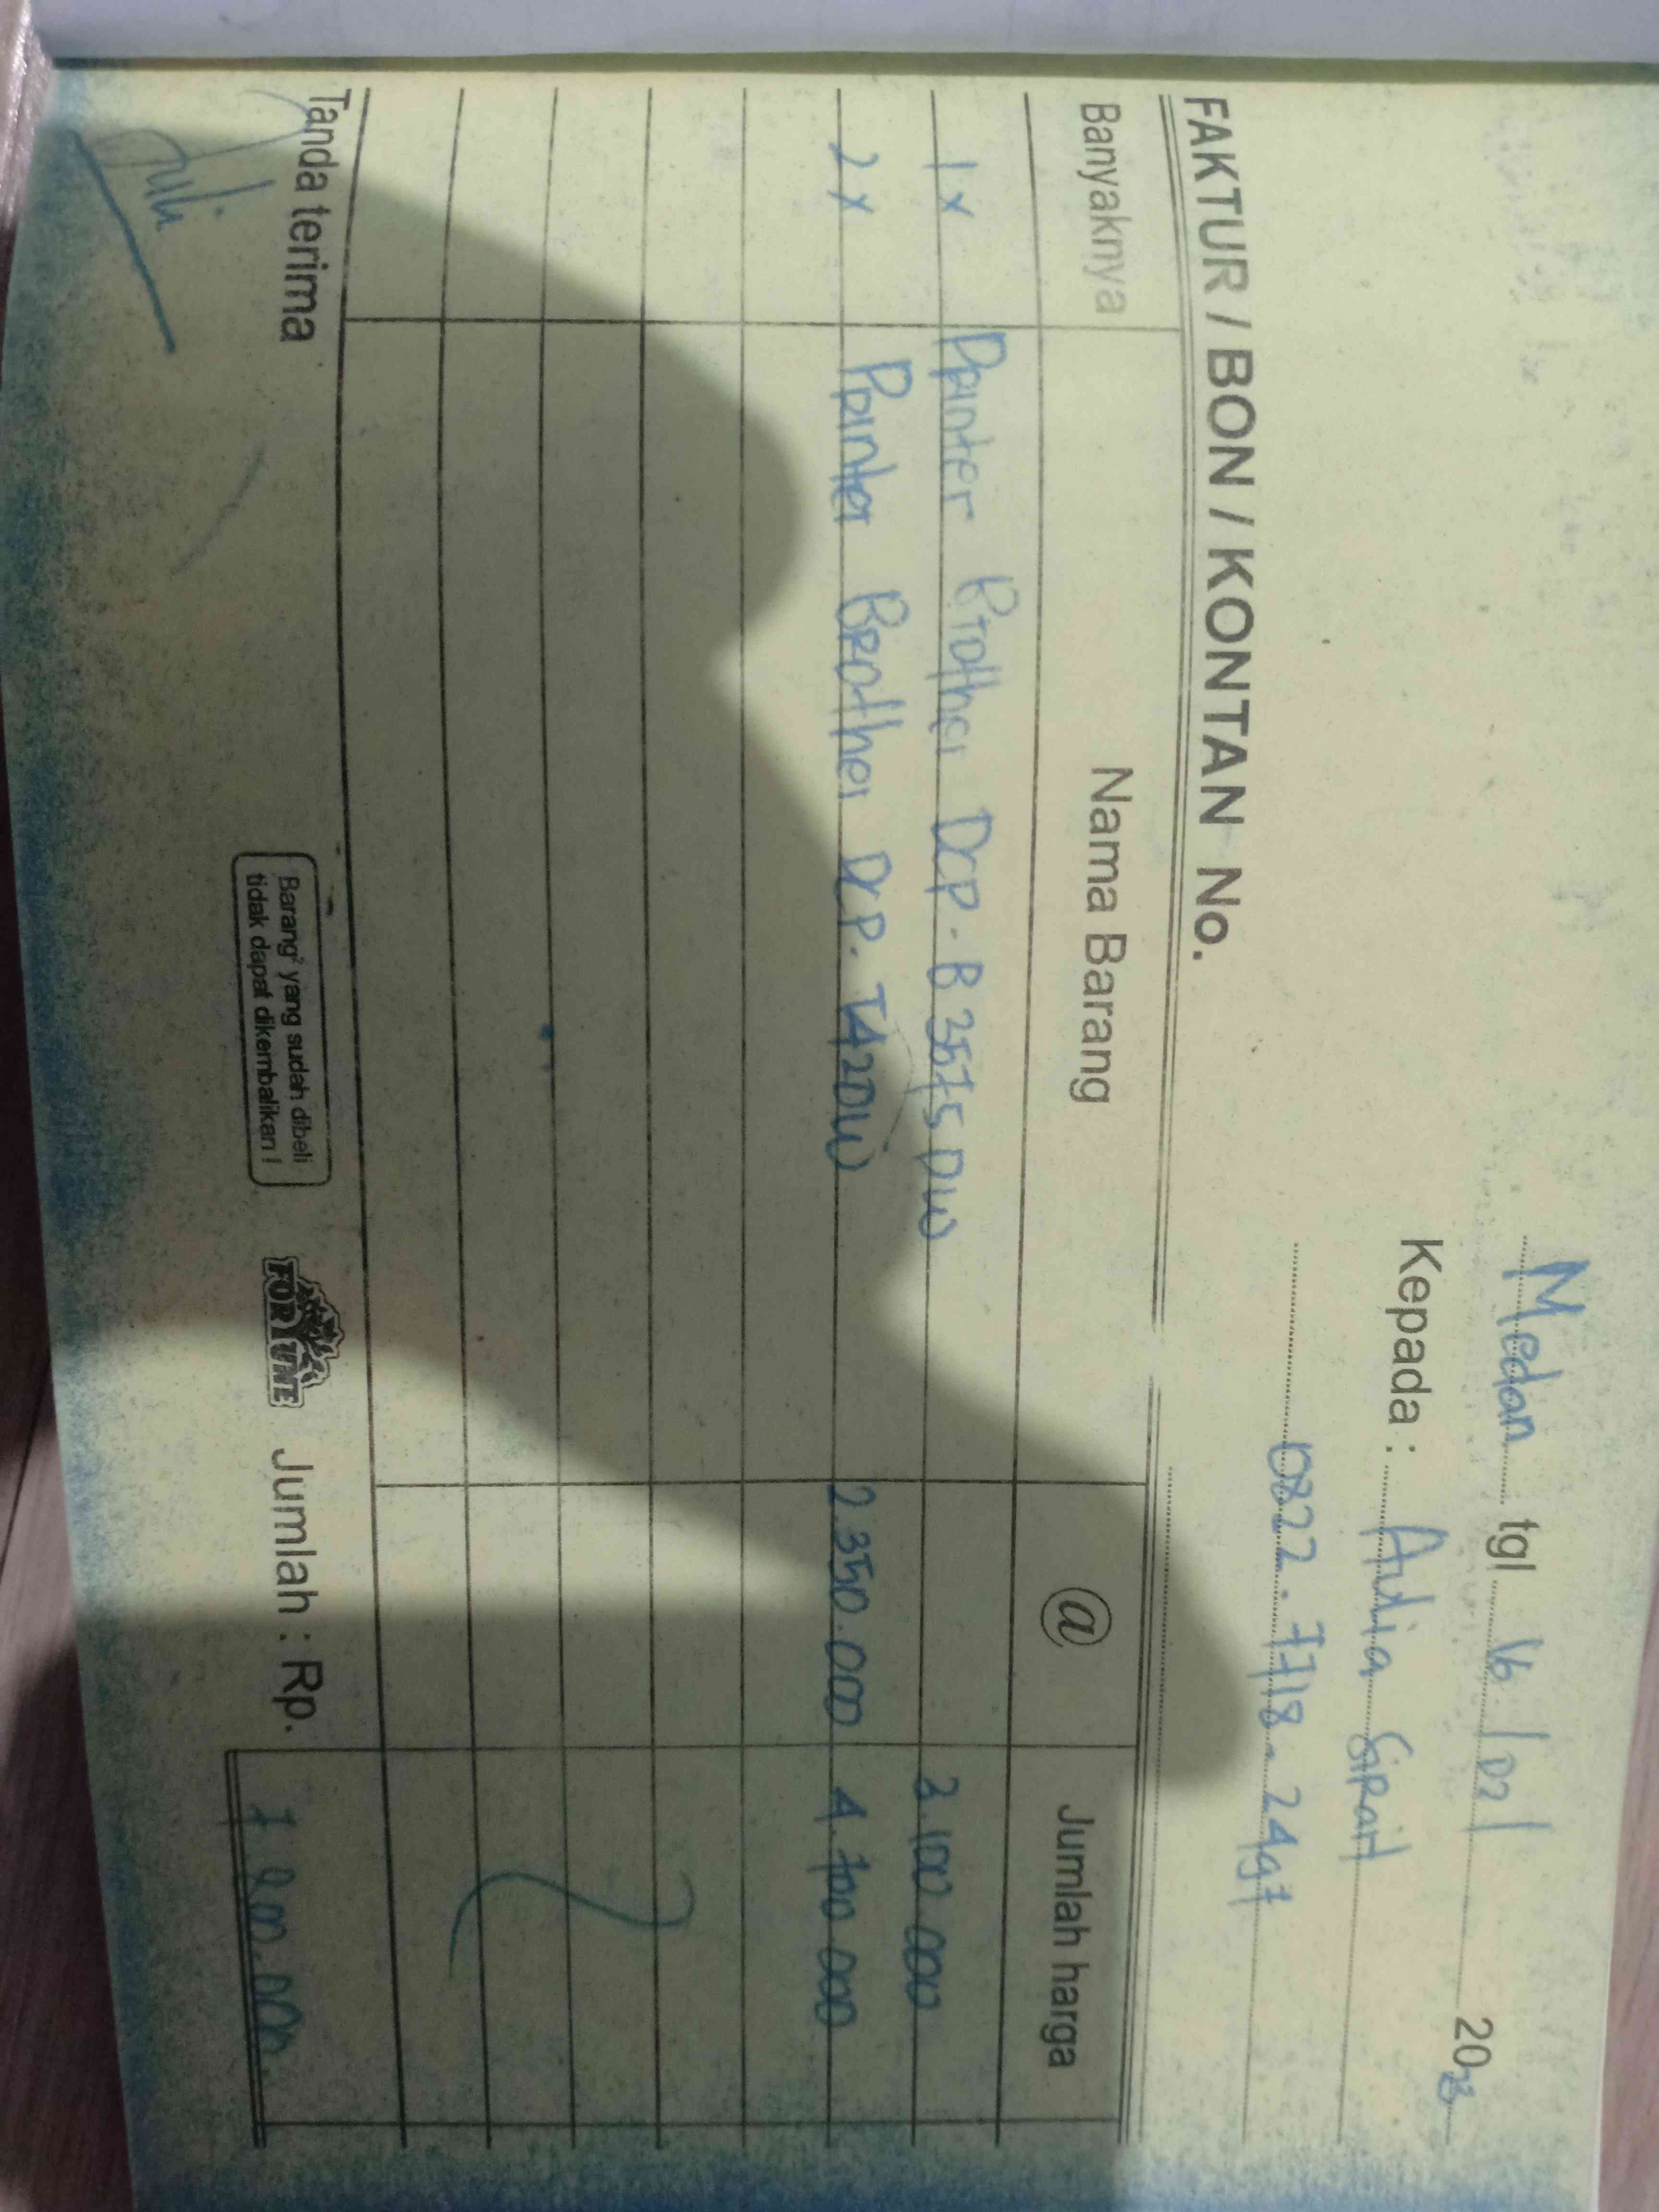 Medan tgl 16 / 02 / 2023
Kepada : Aulia Sirait
0822.7718.2497
FAKTUR / BON / KONTAN No.
Banyaknya Nama Barang @ Jumlah harga
1x Printer Brother DCP-B 3575 DW 3.100.000
2x Printer Brother DCP. T420W 2.350.000 4.700.000
Tanda terima
Barang² yang sudah dibeli
tidak dapat dikembalikan !
FORTUNE
Jumlah : Rp. 7.800.000.